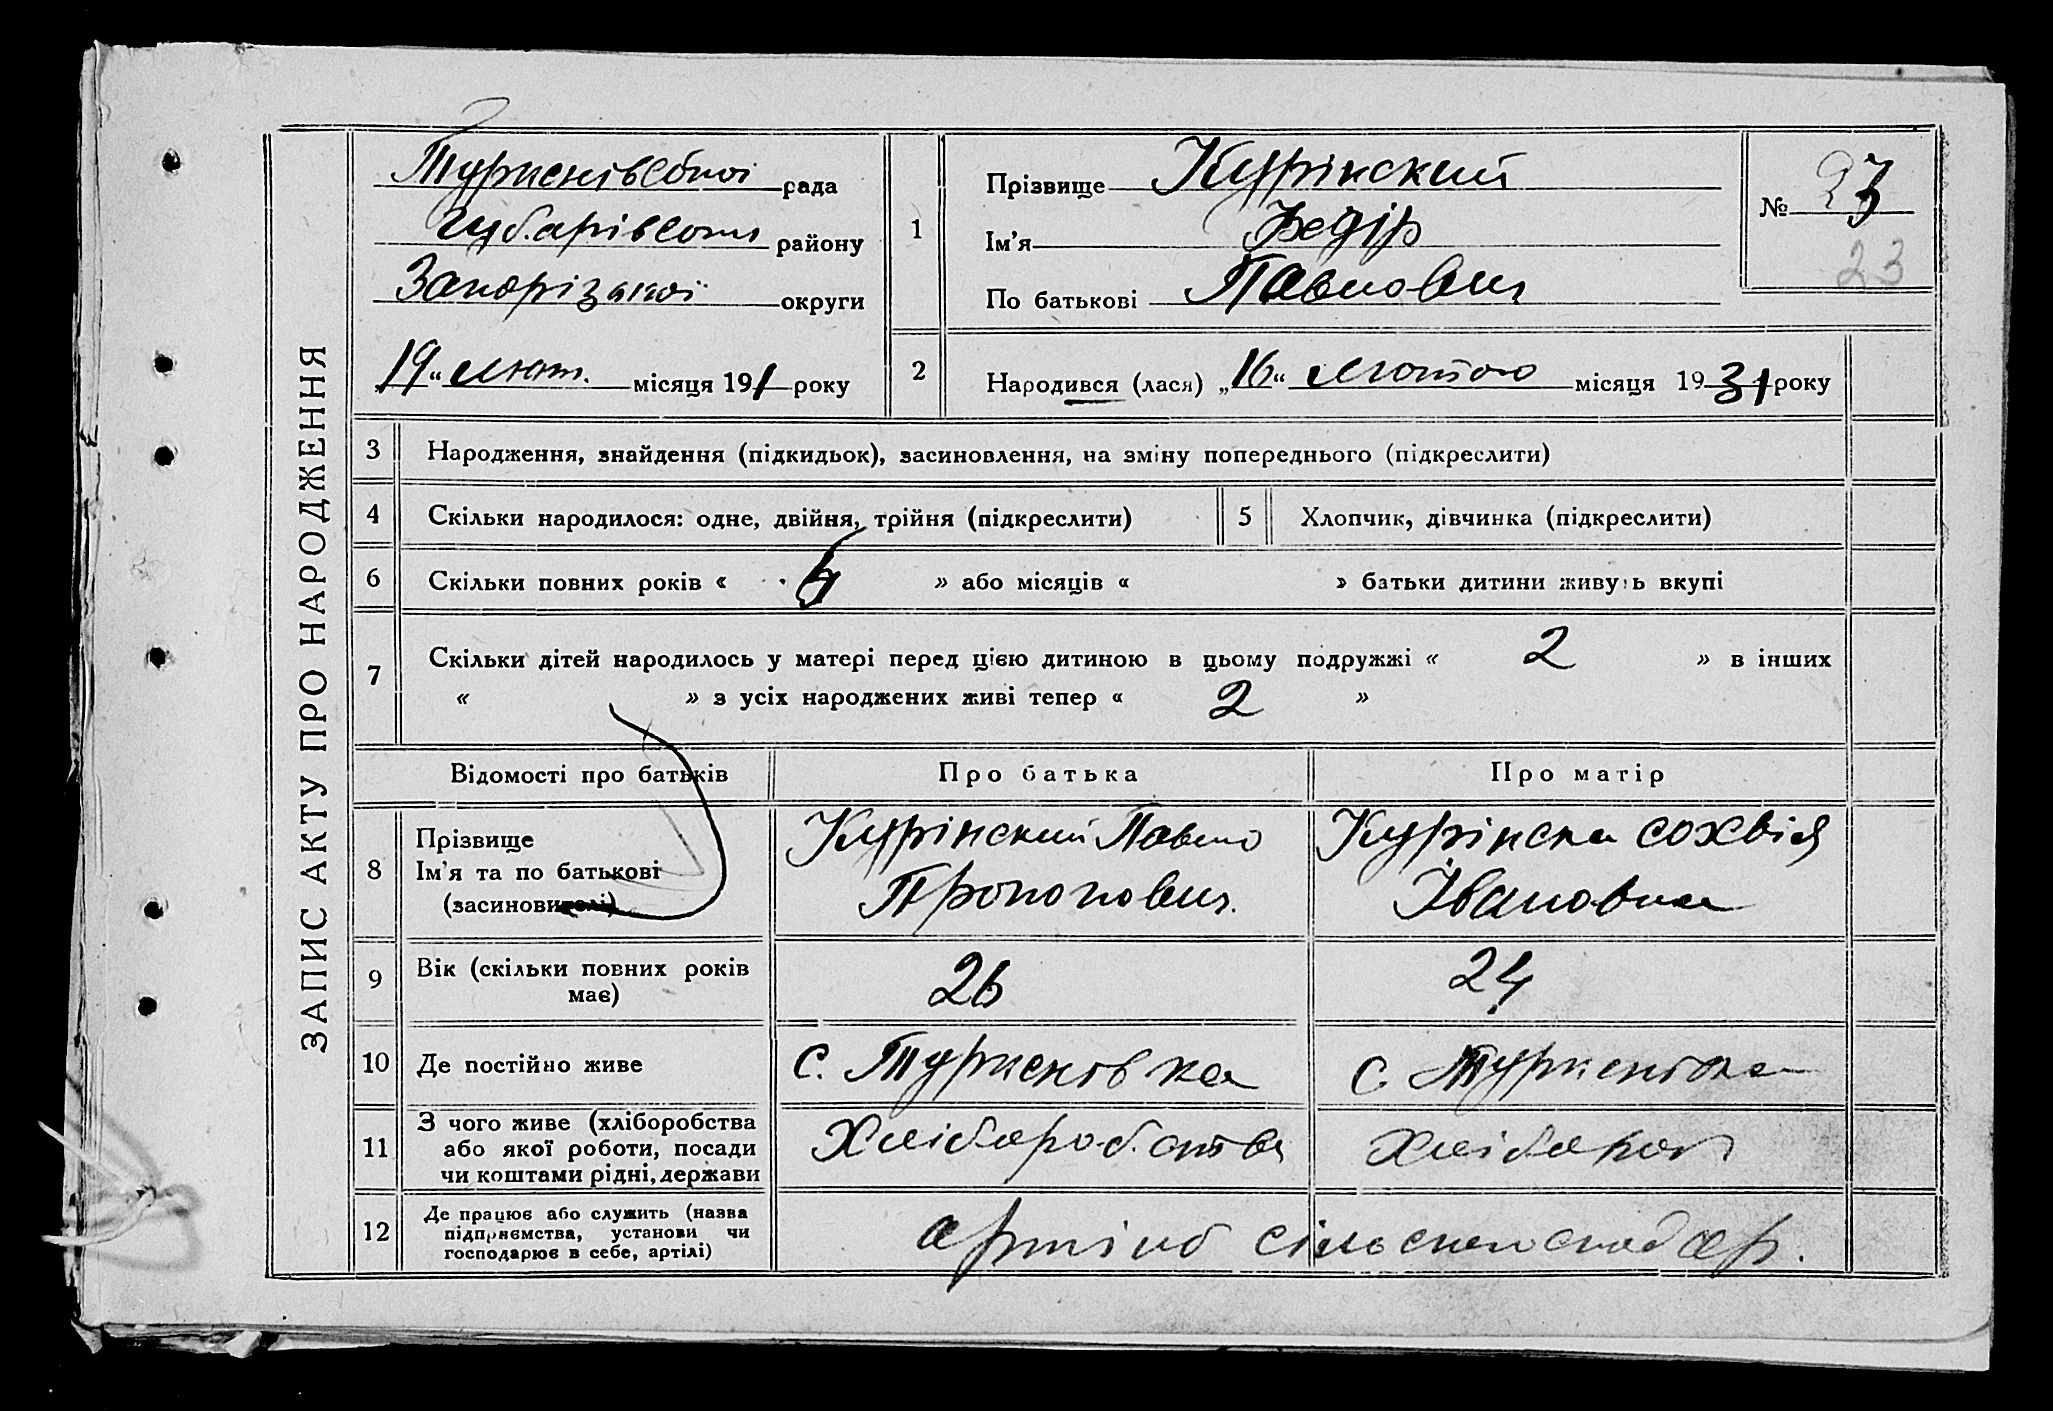 ЗАПИС АКТУ ПРО НАРОДЖЕННЯ
Туркенівської рада
Губарівського району
Запорізької округи
„19“ лют. місяця 191 року
1
Прізвище Курінский
Ім'я Федір
По батькові Павлович
№ 23
23
2
Народився (лася) „16“ лютого місяця 1931 року
3 Народження, знайдення (підкидьок), засиновлення, на зміну попереднього (підкреслити)
4 Скільки народилося: одне, двійня, трійня (підкреслити)
5 Хлопчик, дівчинка (підкреслити)
6 Скільки повних років « » або місяців « » батьки дитини живуть вкупі
7 Скільки дітей народилось у матері перед цією дитиною в цьому подружжі « 2 » в інших
« » з усіх народжених живі тепер « 2 »
Відомості про батьків
Про батька
Про матір
8 Прізвище
Ім'я та по батькові
(засновителі)
Курінский Павло
Прокопович.
Курінска Сохвія
Івановна
9 Вік (скільки повних років
має)
26
24
10 Де постійно живе
с. Туркенівка
с. Туркенівка
11 З чого живе (хліборобства
або якої роботи, посади
чи коштами рідні, держави
Хлібороб.ства
12 Де працює або служить (назва
підприємства, установи чи
господарює в себе, артілі)